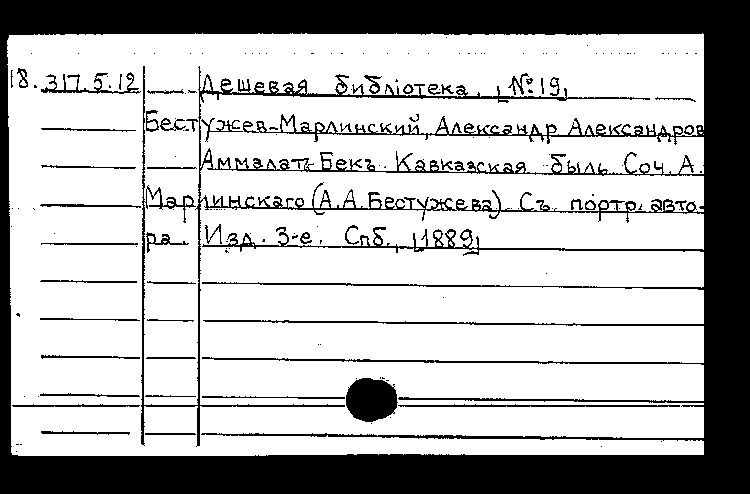 18.317.5.12 Дешевая библіотека. [№19]
Бестужев-Марлинский, Александр Александров
Аммалатъ-Бекъ. Кавказская быль Соч. А.
Марлинскаго (А.А.Бестужева). Съ портр. авто-
ра. Изд. 3-е. Спб., [1889]